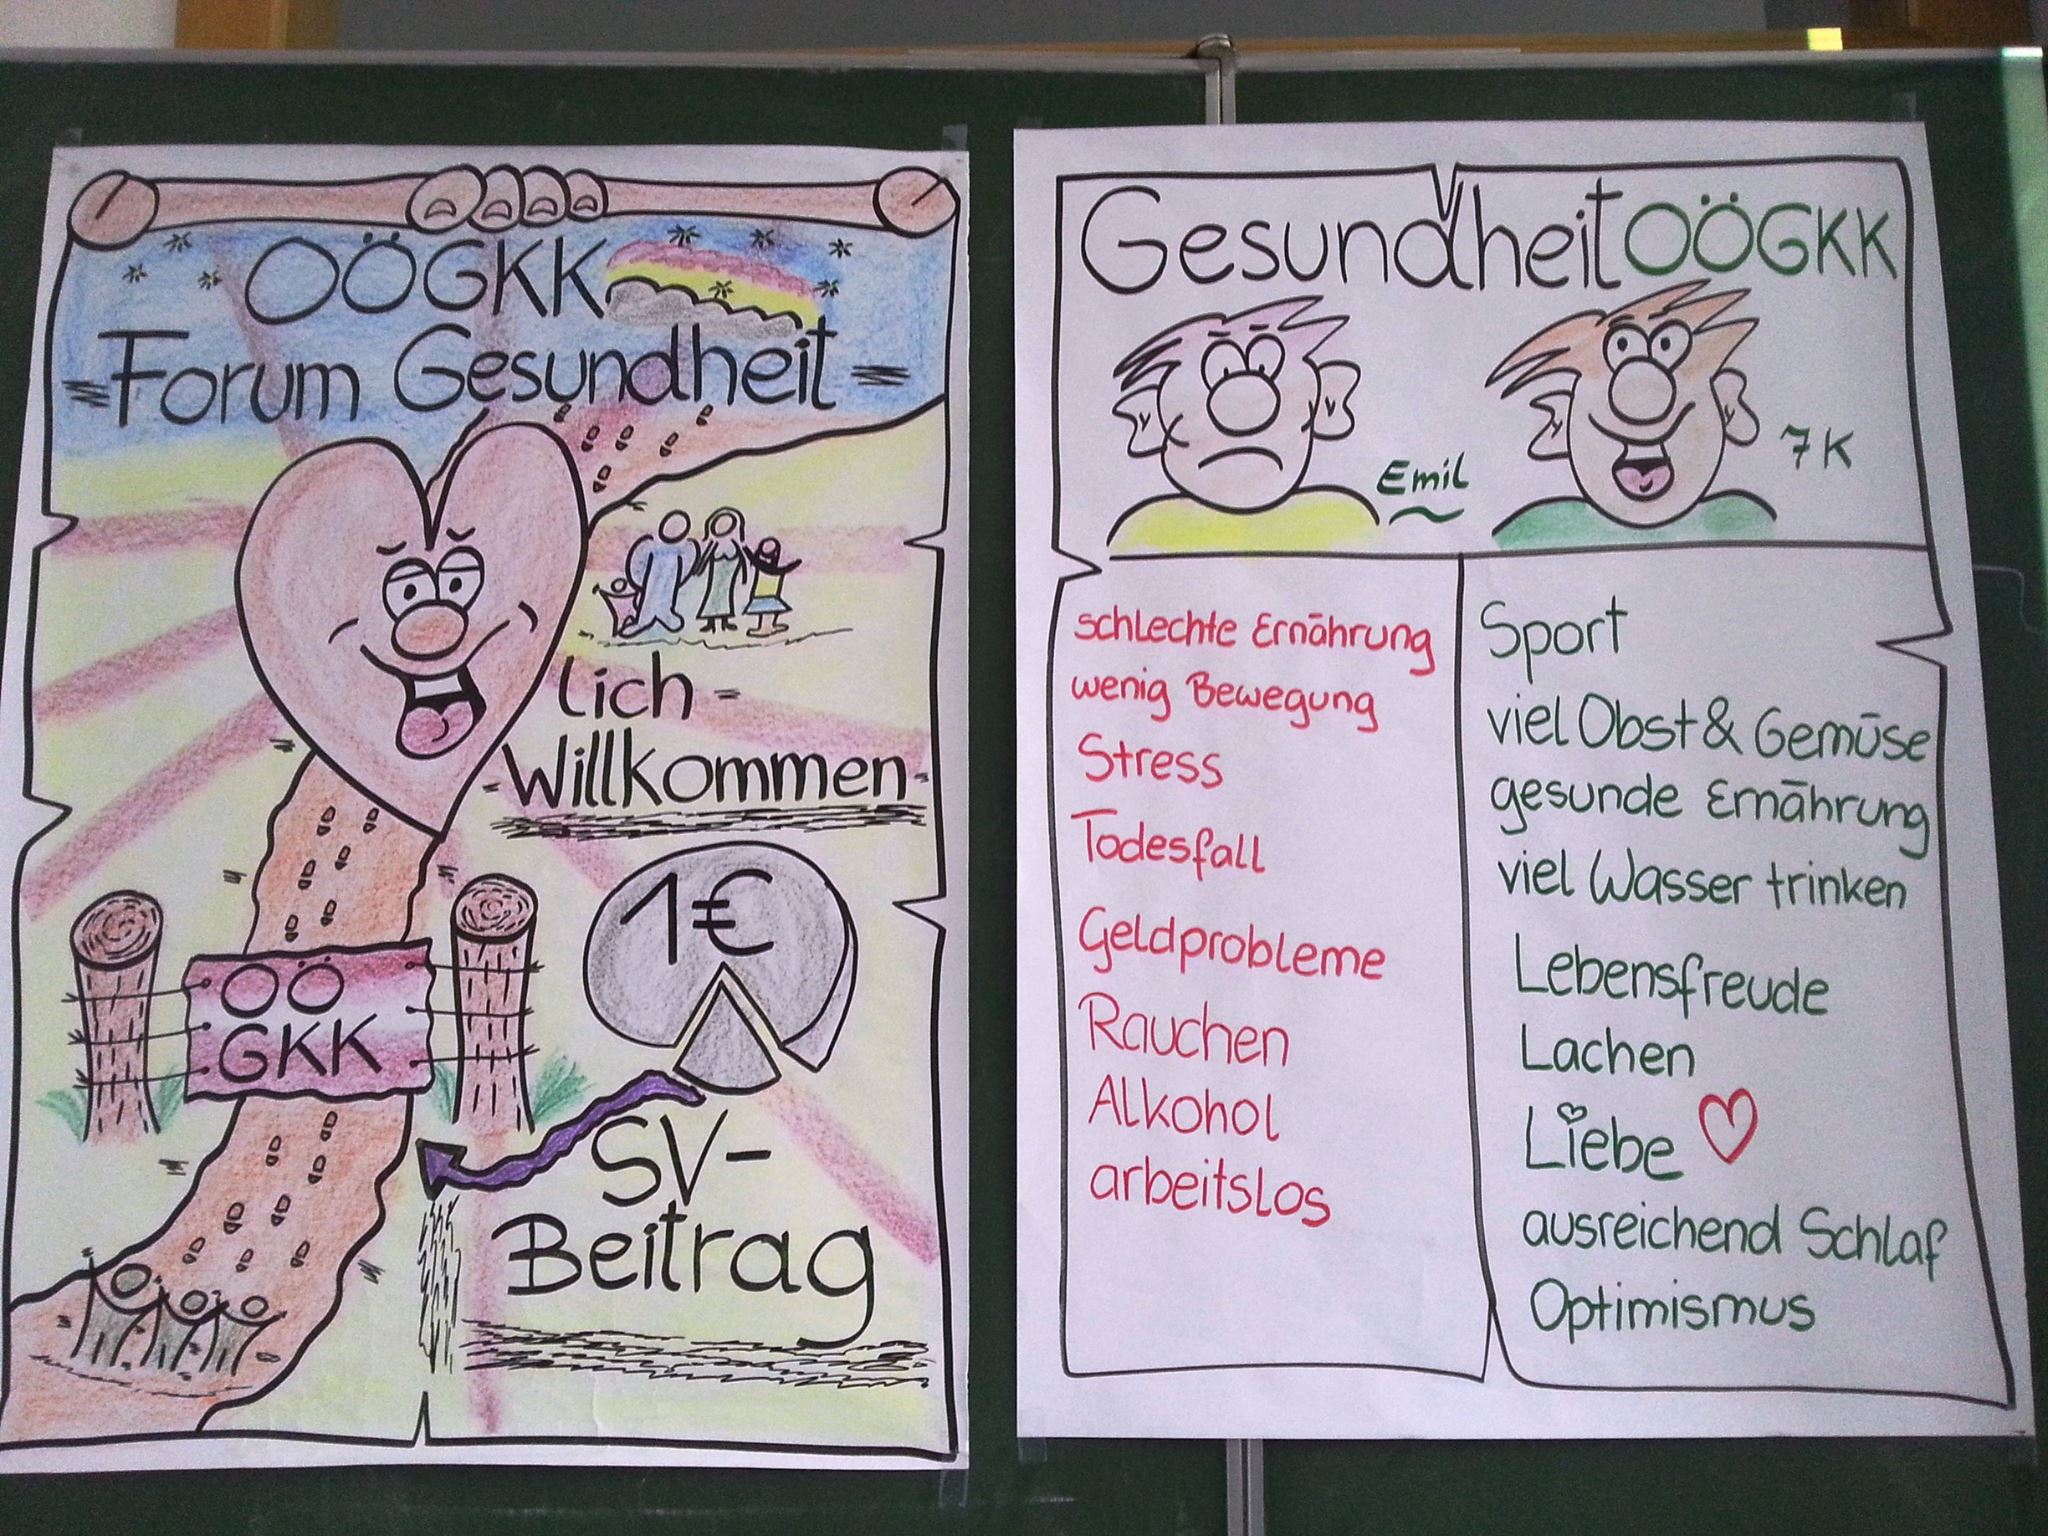 OÖGKK
Forum Gesundheit
lich
Willkommen
1€
OÖ
GKK
SV-
Beitrag
Gesundheit OÖGKK
Emil
7K
schlechte Ernährung
wenig Bewegung
Stress
Todesfall
Geldprobleme
Rauchen
Alkohol
arbeitslos
Sport
viel Obst & Gemüse
gesunde Ernährung
viel Wasser trinken
Lebensfreude
Lachen
Liebe
ausreichend Schlaf
Optimismus